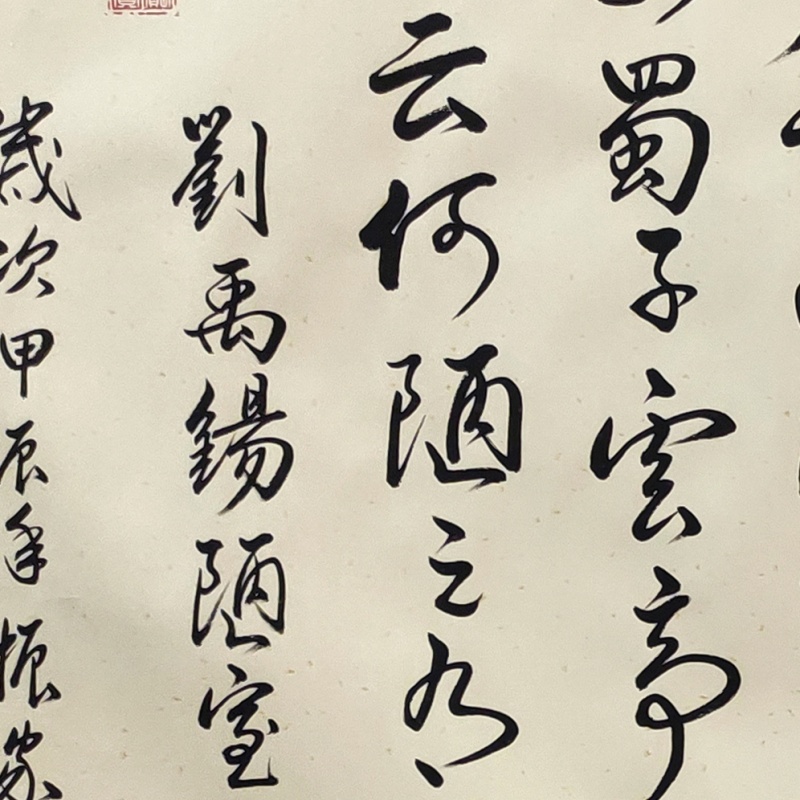 蜀子雲亭
云何陋之有
劉禹錫陋室
歲次甲辰年振家